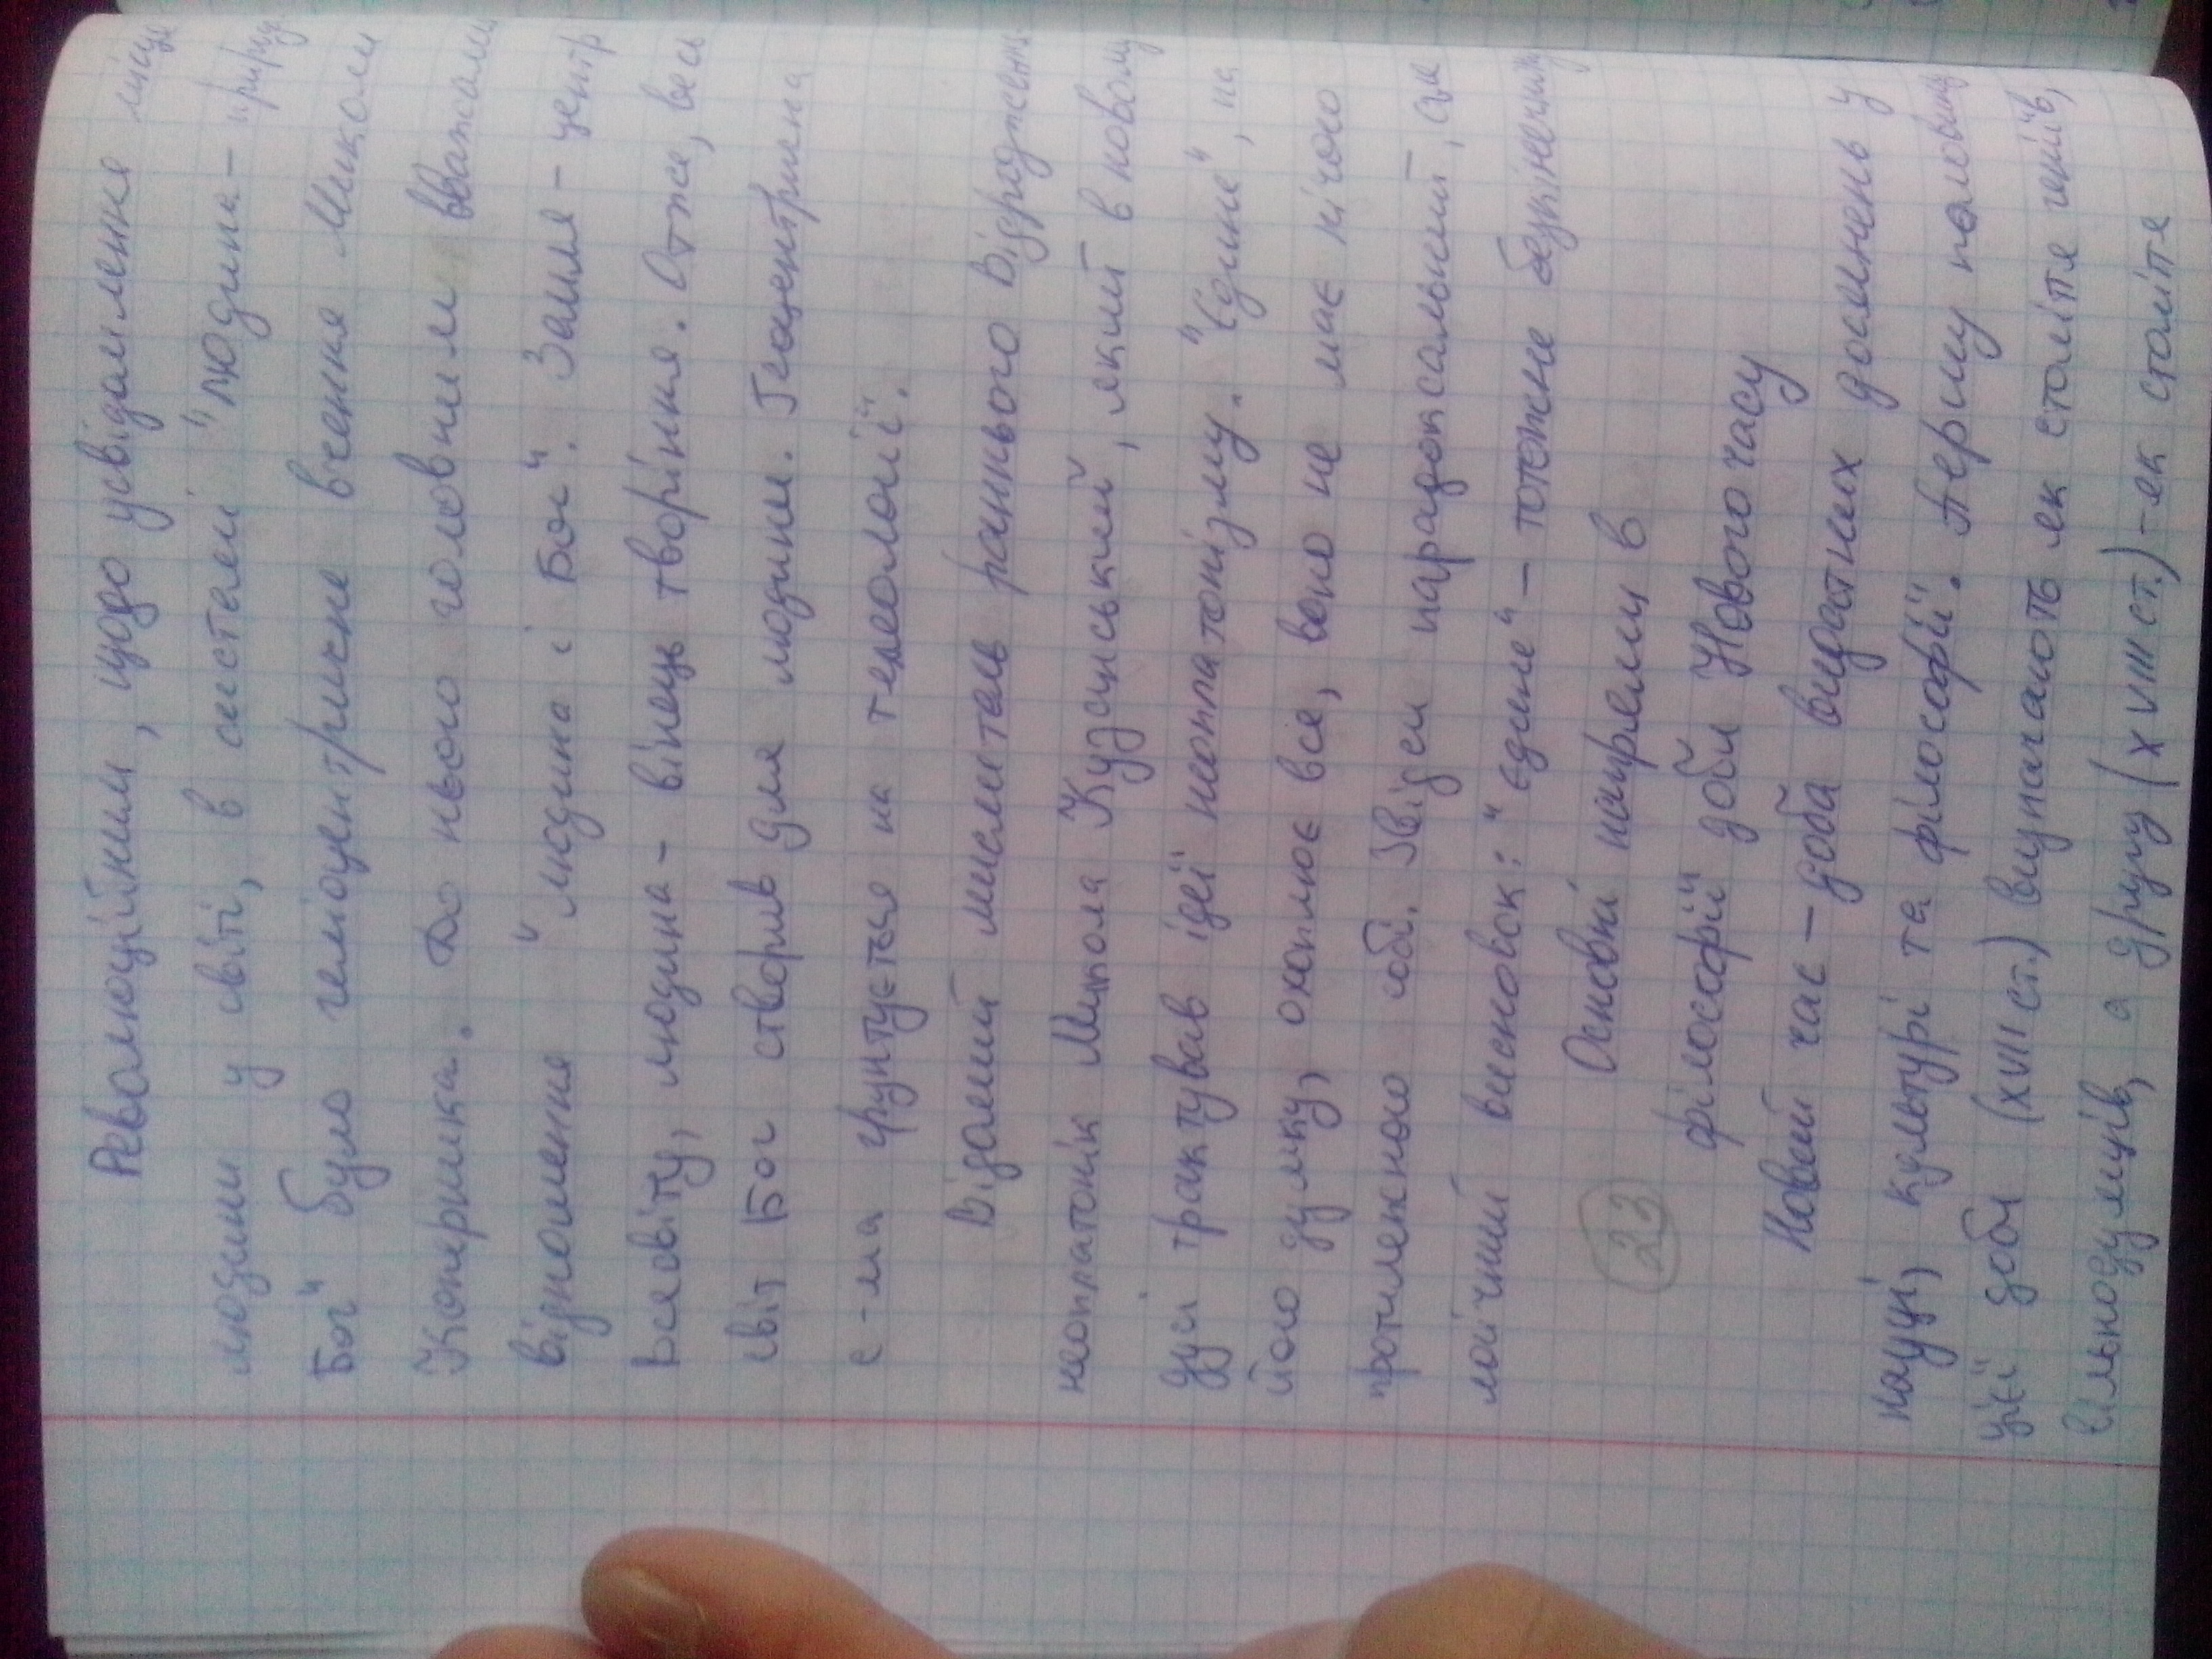 Революційним, щодо усвідомлення місця
людини у світі, в системі "людина - природа
Бог" було геліоцентричне вчення Миколи
Коперника. До нього головним вважали
відношення "людина і Бог". Земля - центр
Всесвіту, людина - вінець творіння. Отже, весь
світ Бог створив для людини. Геоцентрична
с-ма грунтується на телеології.
Відомий мислитель раннього Відродження
неоплатонік Микола Кузанський, який в новому
дусі трактував ідеї неоплатонізму. "Єдине", на
його думку, охоплює все, воно не має нічого
протилежного собі. Звідси парадоксальний, але
логічний висновок: "єдине" - тотожне безкінечному
23 Основні напрями в
філософії доби Нового часу
Новий час - доба видатних досягнень у
науці, культурі та філософії. Першу половину
цієї доби (XVII ст.) визначають як століття геніїв,
вільнодумців, а другу (XVIII ст.) - як століття